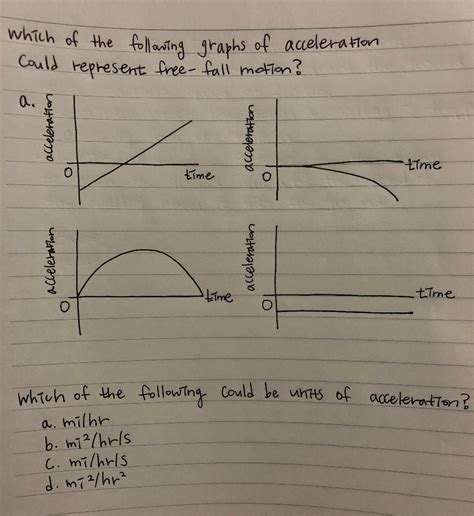 which of the following graphs of acceleration
could represent free-fall motion?
a.
acceleration
0
time
acceleration
0
time
acceleration
0
time
acceleration
0
time
which of the following could be units of acceleration?
a. mi/hr
b. mi²/hr/s
c. mi/hr/s
d. mi²/hr²